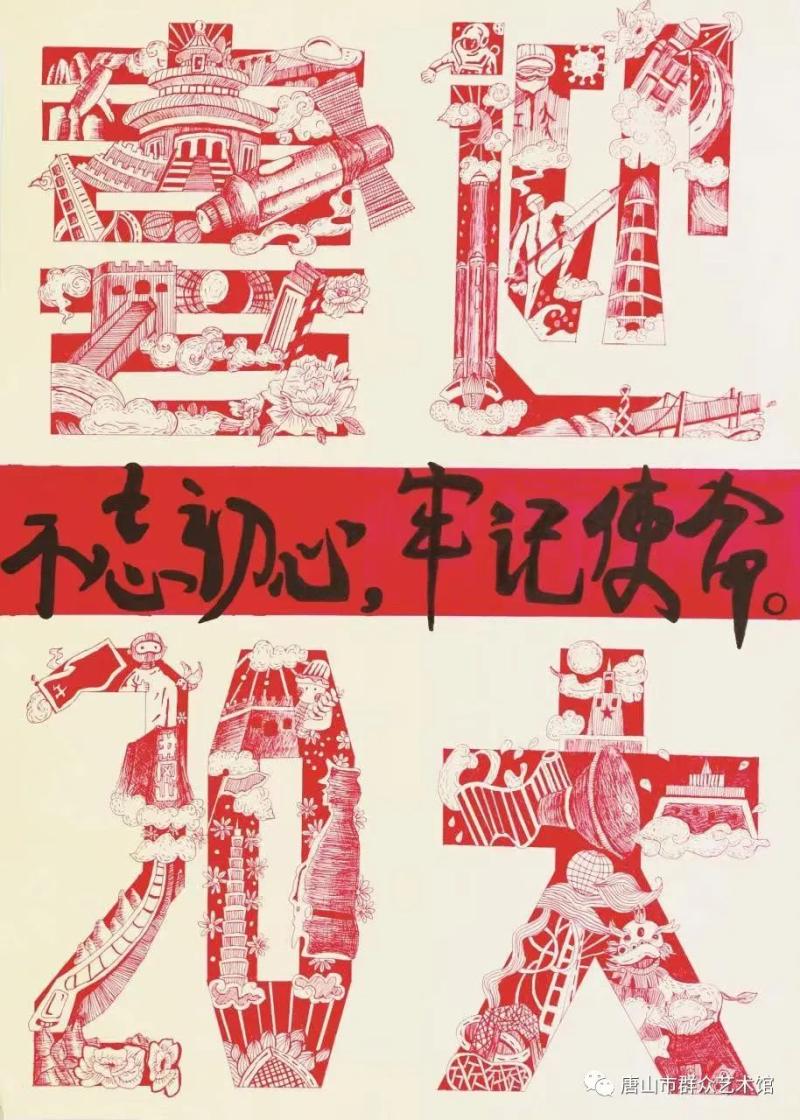 喜迎
不忘初心，牢记使命。
20大
井冈山
唐山市群众艺术馆